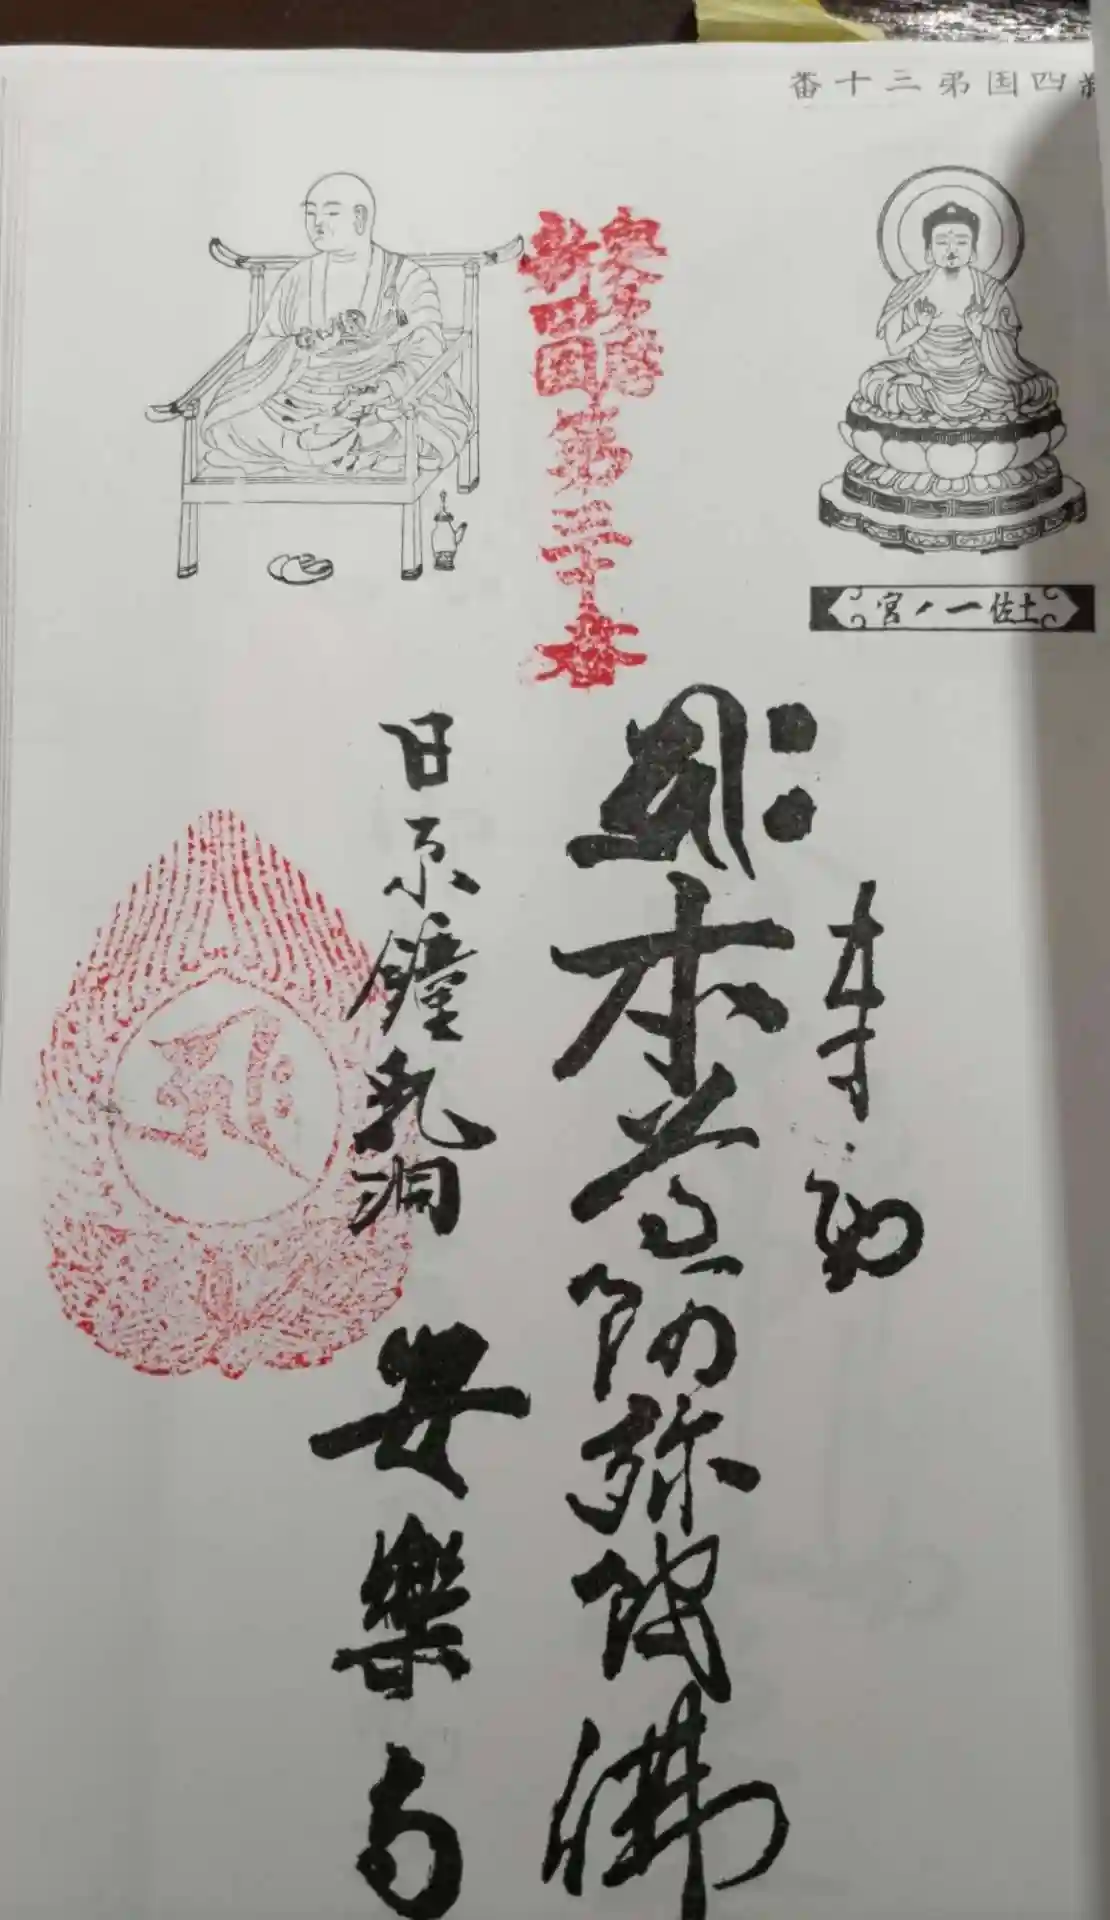 四国弟三十番
土佐一ノ宮
奥多摩
新四国
第三十番
奉納
本尊阿弥陀佛
日原鐘乳洞
安樂寺